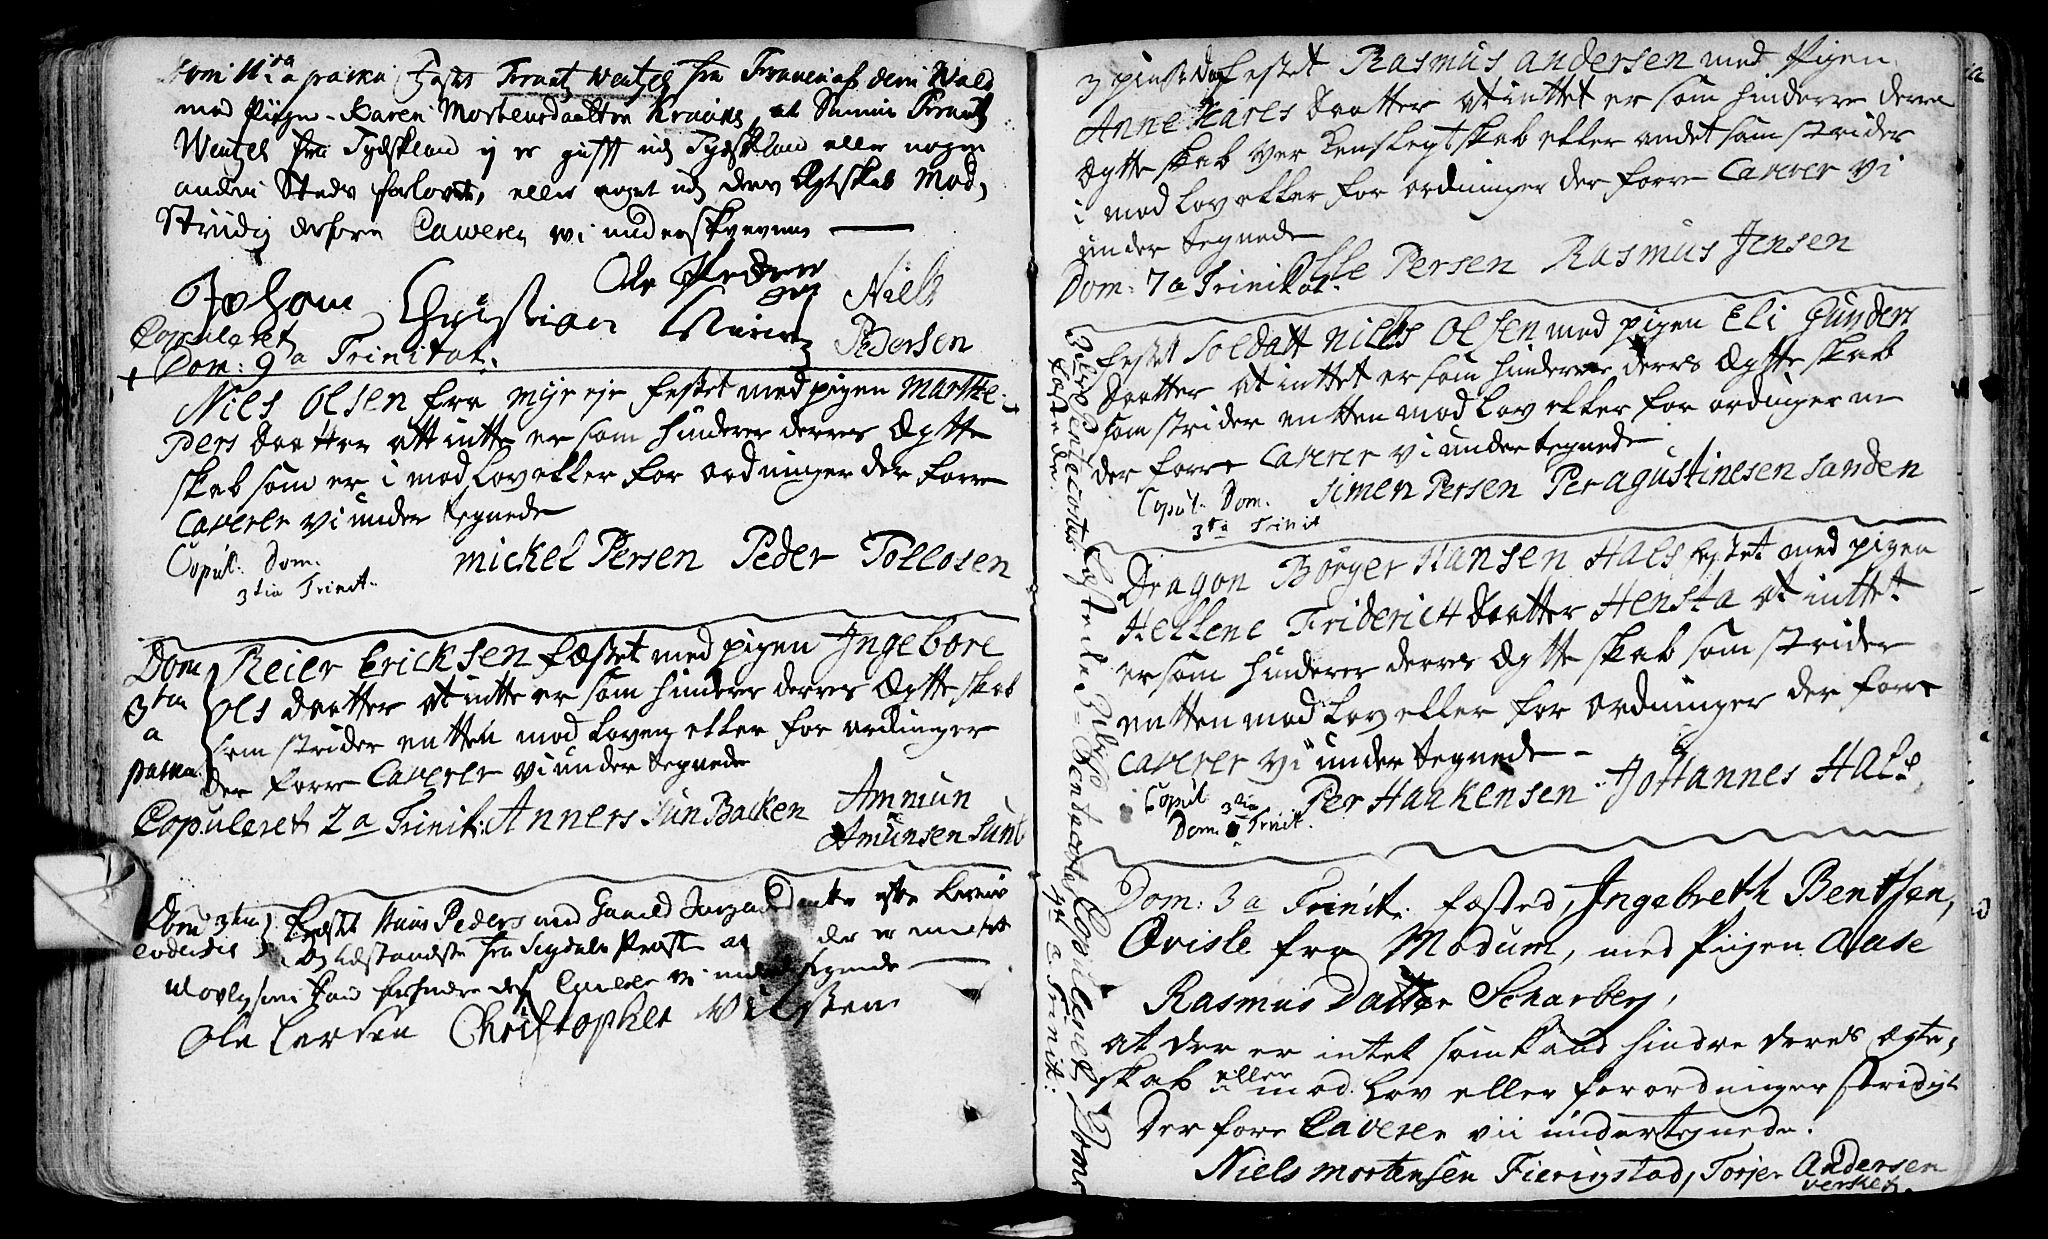 Dom: 11da a pascha Fæstet Frantz Wentzel fra Frauen auf dem Wald
med Piigen Karen Mortensdaatter Kraane, at Samme Frantz
Wentzel fra Tydskland ej er gifft udj Tydskland eller nogen
anden Steds forlovet, eller noget udj deres Ægteskab Mod,
Striidig derfore Cawerer vi underskrevne
Johan Christian Ole Pedersen Niels
Pedersen
Copuleret
Dom: 9a Trinitat:
Niels Olsen fra myreje festet med pigen Marthe
Pers daatter att intte er som hinderer derres Ægtte
skab som er i mod lov eller for ordninger der forre
Caverer vi under tegnede
Copul: Dom.
3tia Trinit.
mickel Persen Peder Tollosen
Dom
3tia
a
pascha
Reier Ericksen fæstet med pigen Ingebore
Ols daatter at intte er som hinderer derres Ægtte skab
som strider entten mod loven eller for ordinger
der forre Caverer vi under tegnede
Copuleret 2a Trinit: Anners Sun Backen Ammun
Amunsen Sunb
Dom 3tia
eodem die
Fæstet Hans Peders med Gunild
Sigdals Præst at der er intet
ulovlig som kand forhindre det Cawere vi undertegnede
Ole Larsen Christopher Nilsten
3 pinsedag festet Rasmus Andersen med Pigen
Anne Kares daatter at inttet er som hinderer derres
Ægtte skab ver Kenslegtskab eller andet som strider
i mod lov eller for ordninger der forre Caverer vi
under tegnede
Ole Persen Rasmus Jensen
Dom: 7a Trinitat.
festet Soldatt niels Olsen med pigen Eli Gunders
daatter at inttet er som hinderer derres Ægtte skab
som strider entten mod lov eller for ordinger ne
der forre Caverer vi under tegnede
Copul: Dom.
3tia Trinit
Simen Persen Per agustinesen sanden
Dragon Börger Hansen Hals festet med pigen
Hellene Friderich daatter Hensta at inttet
er som hinderer derres Ægtte skab som strider
entten mod lov eller for ordninger der forre
Caverer vi under tegnede
Copul 3tia
Dom: Trinit.
Per Haakensen Johannes Hals
Dom: 3a Trinit: fæsted, Ingebreth Bentsen,
Qvisle fra Modum, med Piigen Aase
Rasmus Datter Scharberg,
at der er intet som kand hindre deres Ægte,
skab eller imod Lov eller forordninger stridigt
Derfore Caverer vii undertegnede.
Niels mortensen Fierigstad, Torjer Andersen